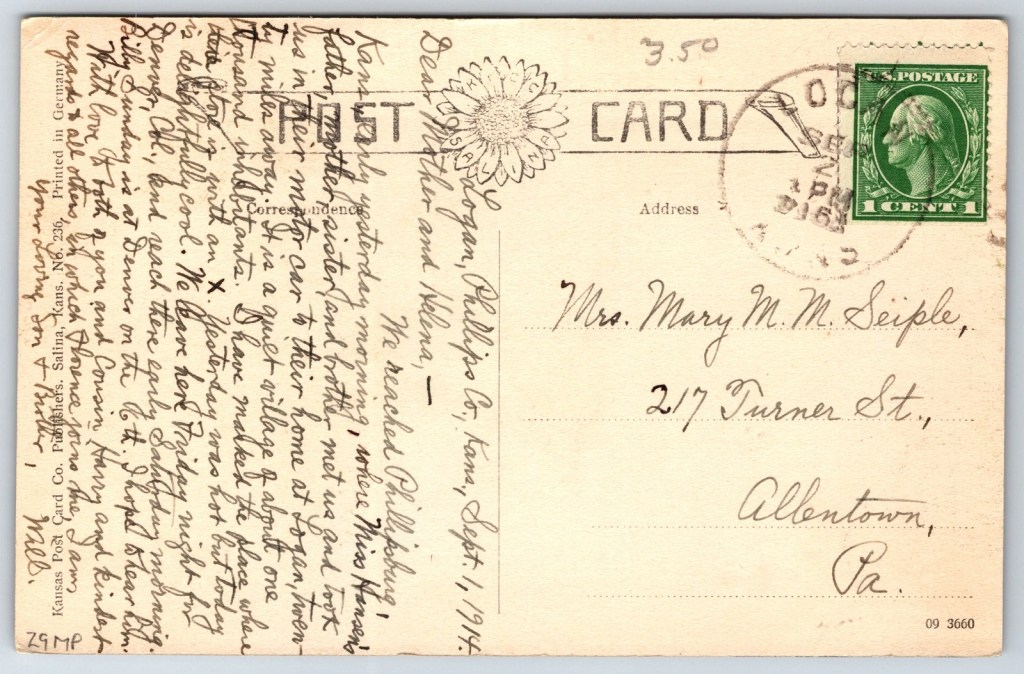 3.50
POST CARD
Correspondence
Address
U.S. POSTAGE
1 CENT 1
LOGAN
SEP
2
1 PM
KANS
Logan, Phillips Co., Kans., Sept. 1, 1914.
Dear Mother and Helena, —
We reached Phillipsburg,
Kans. early yesterday morning, where Miss Hansen's
father, mother, sister, and brother met us and took
us in their motor car to their home at Logan, twen-
ty miles away. It is a quiet village of about one
thousand inhabitants. I have marked the place where
store is with an X. Yesterday was hot but today
is delightfully cool. We leave here Friday night for
Denver, Col., and reach there early Saturday morning.
Billy Sunday is at Denver on the 6th. I hope to hear him.
With love to both of you and Cousin Harry and kindest
regards to all others in which Florence joins me I am
Your loving son & brother,
Will.
Mrs. Mary M. M. Seiple,
217 Turner St.,
Allentown,
Pa.
Kansas Post Card Co. Publishers. Salina, Kans. No. 236. Printed in Germany
09 3660
Z9MP